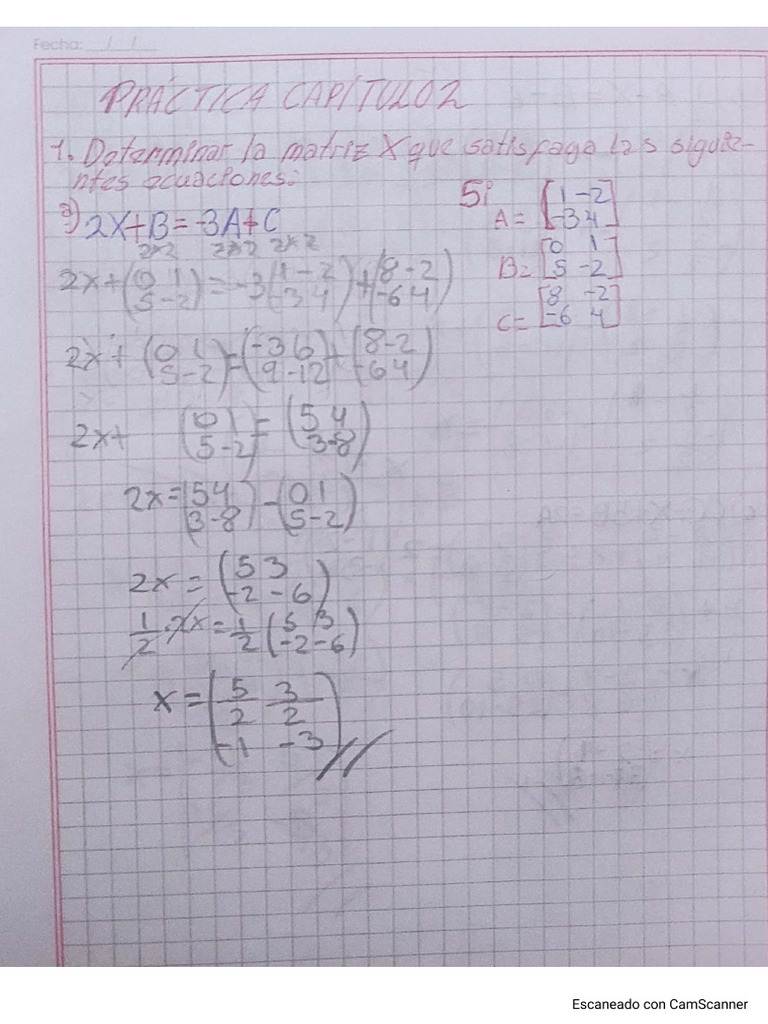 Fecha: / /
PRÁCTICA CAPÍTULO 2
1. Determinar la matriz X que satisfaga las siguie-
ntes ecuaciones:
Si
A = [1 -2
-3 4]
B = [0 1
5 -2]
C = [8 -2
-6 4]
a) 2X+B=-3A+C
2x2 2x2 2x2
2x+(0 1 = -3(1 -2 + (8 -2
5 -2) -3 4) -6 4)
2x + (0 1 = (-3 6 + (8 -2
5 -2) 9 -12) -6 4)
2x+ (0 1 = (5 4
5 -2) 3 -8)
2x = (5 4 - (0 1
3 -8) 5 -2)
2x = (5 3
-2 -6)
1/2 · 2x = 1/2 (5 3
-2 -6)
x = (5/2 3/2
-1 -3)//
Escaneado con CamScanner